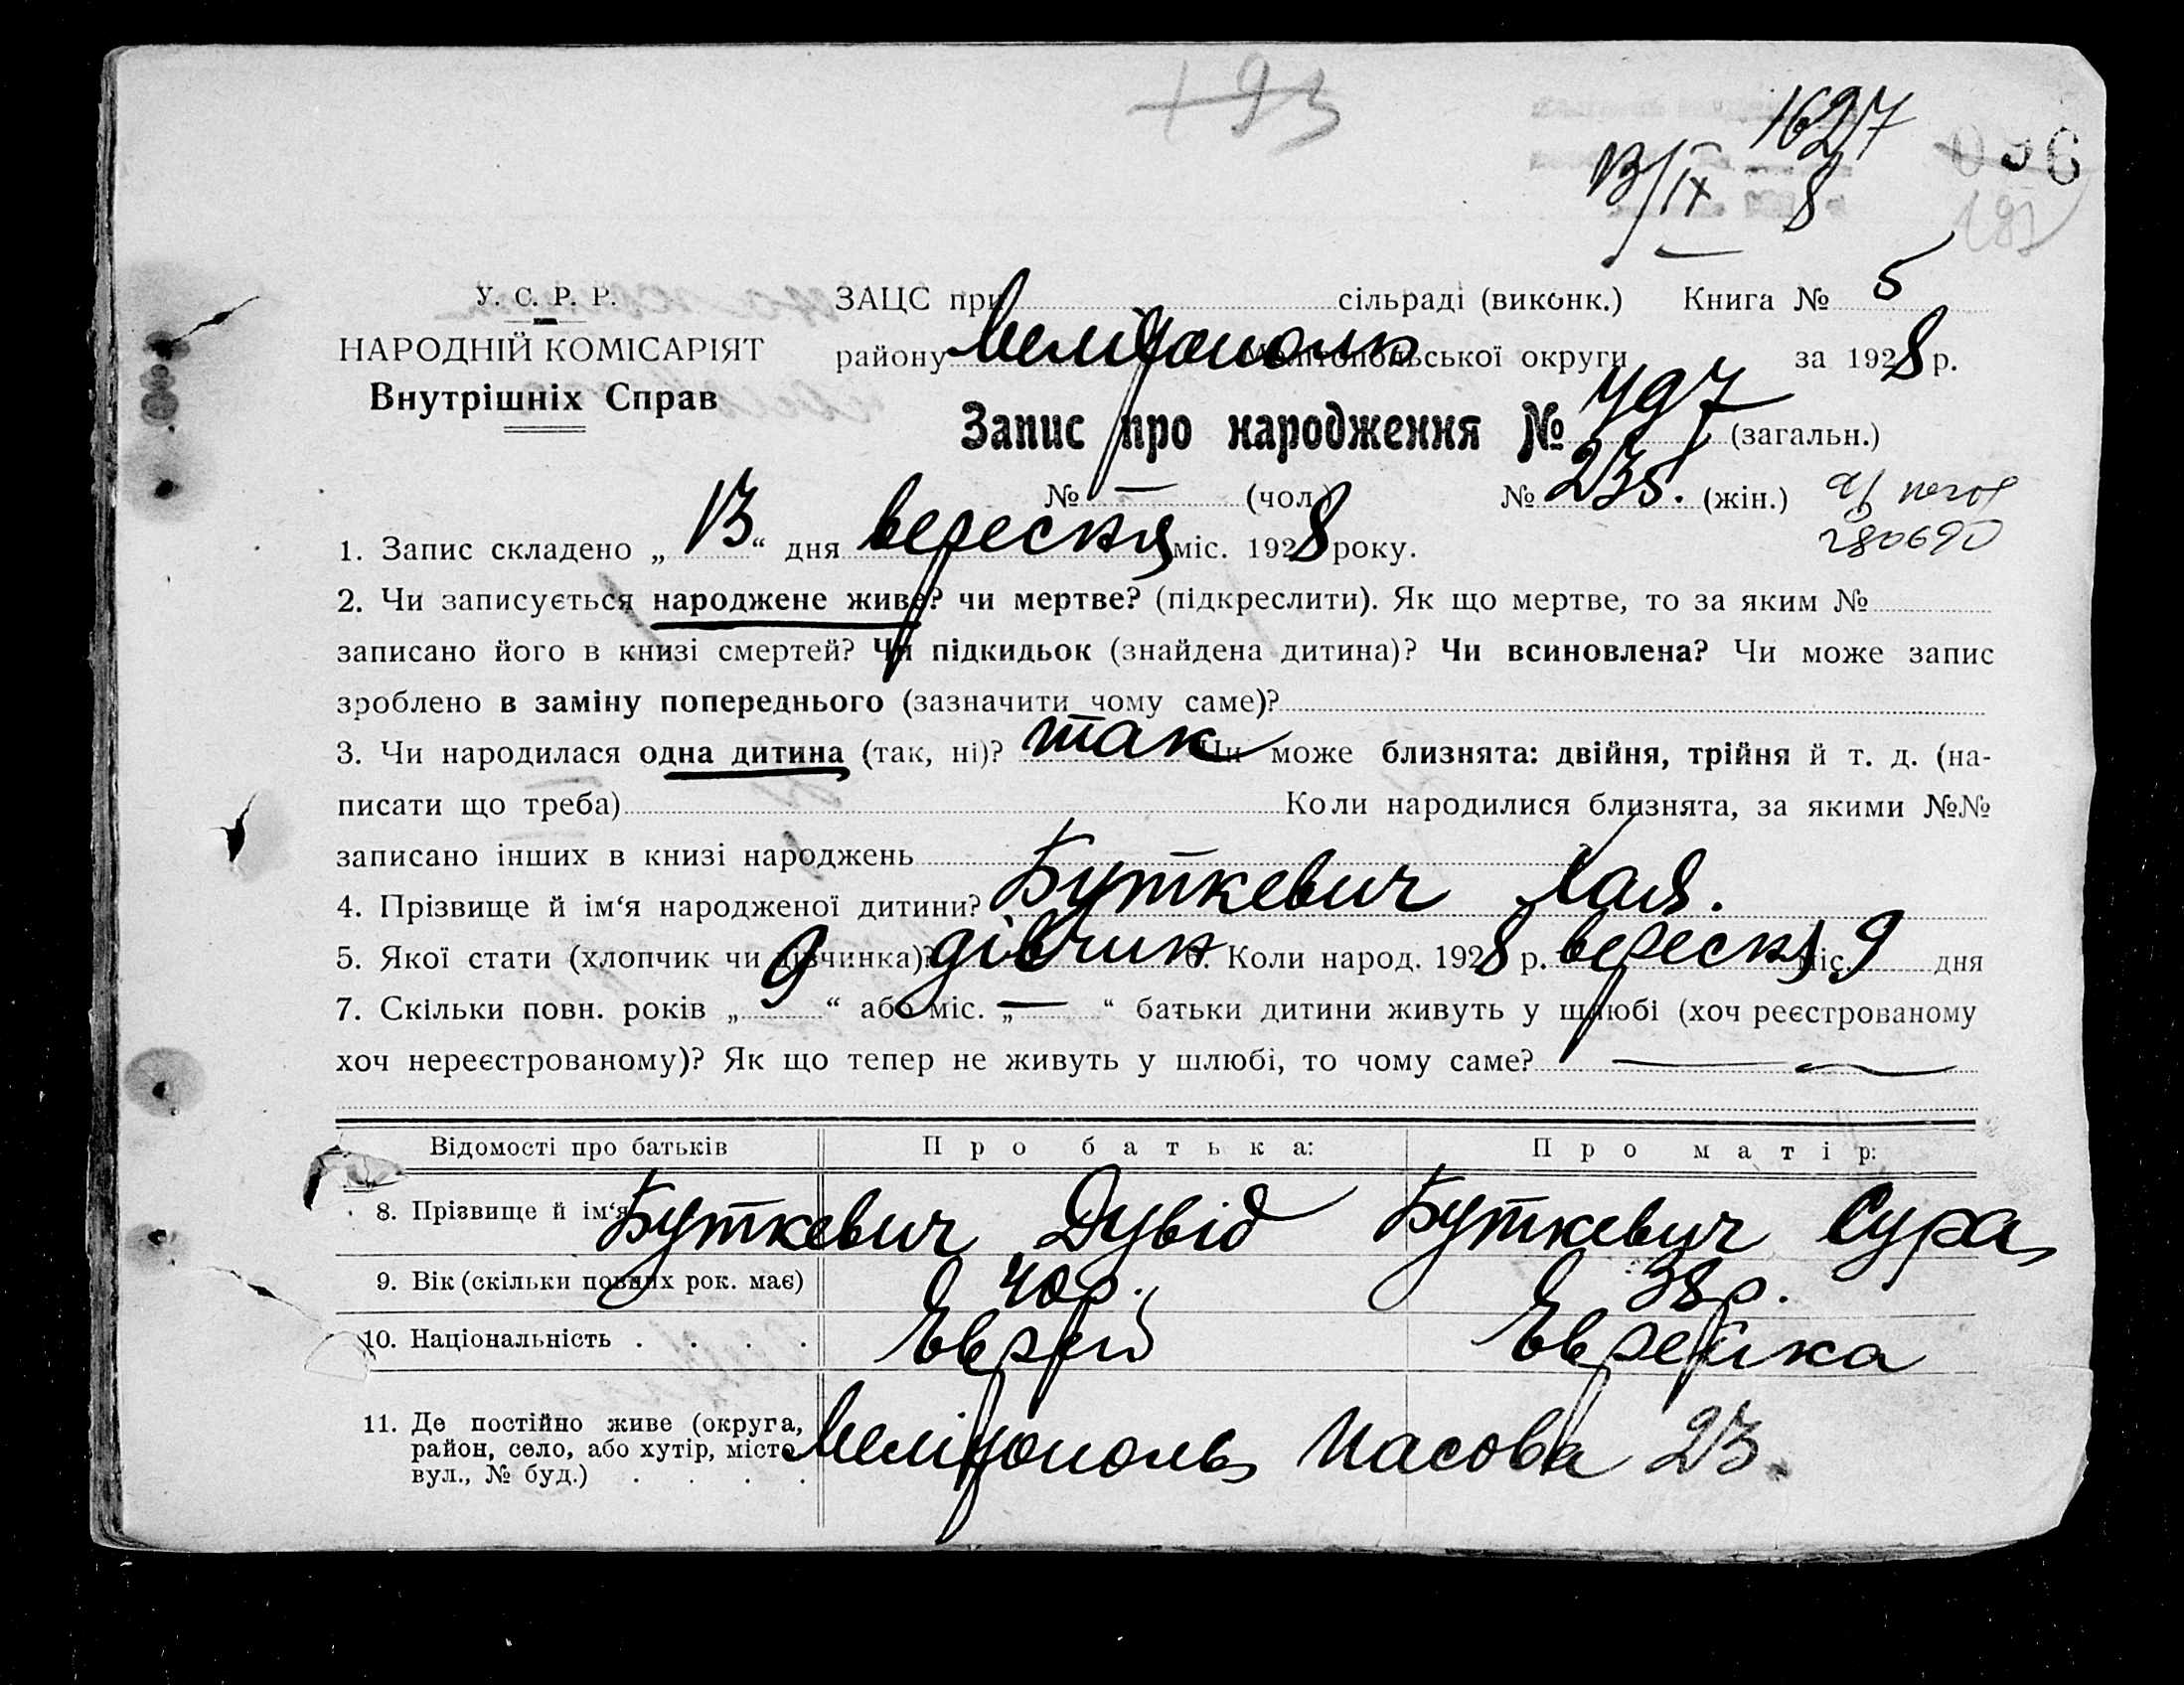 193
1627
13/IX 8
У. С. Р. Р.
НАРОДНІЙ КОМІСАРІЯТ
Внутрішніх Справ
ЗАЦС при сільраді (виконк.) Книга № 5
району Мелітополь Мелітопольської округи за 1928 р.
Запис про народження № 797 (загальн.)
№ — (чол.) № 235. (жін.)
280690
1. Запис складено „13“ дня вересня міс. 1928 року.
2. Чи записується народжене живе? чи мертве? (підкреслити). Як що мертве, то за яким №
записано його в книзі смертей? Чи підкидьок (знайдена дитина)? Чи всиновлена? Чи може запис
зроблено в заміну попереднього (зазначити чому саме)?
3. Чи народилася одна дитина (так, ні)? так Чи може близнята: двійня, трійня й т. д. (на-
писати що треба) Коли народилися близнята, за якими №№
записано інших в книзі народжень
4. Прізвище й ім‘я народженої дитини? Буткевич Хая.
5. Якої стати (хлопчик чи дівчинка)? дівчин 6. Коли народ. 1928 р. вересня міс. 9 дня
7. Скільки повн. років „9“ або міс. „—“ батьки дитини живуть у шлюбі (хоч реєстрованому
хоч нереєстрованому)? Як що тепер не живуть у шлюбі, то чому саме? —
Відомості про батьків Про батька: Про матір:
8. Прізвище й ім‘я Буткевич Дувід Буткевич Сура
9. Вік (скільки повних рок. має) 40 р. 38 р.
10. Національність . . . . Еврей Еврейка
11. Де постійно живе (округа,
район, село, або хутір, місто Мелітополь Масова 23.
вул., № буд.) . . . .